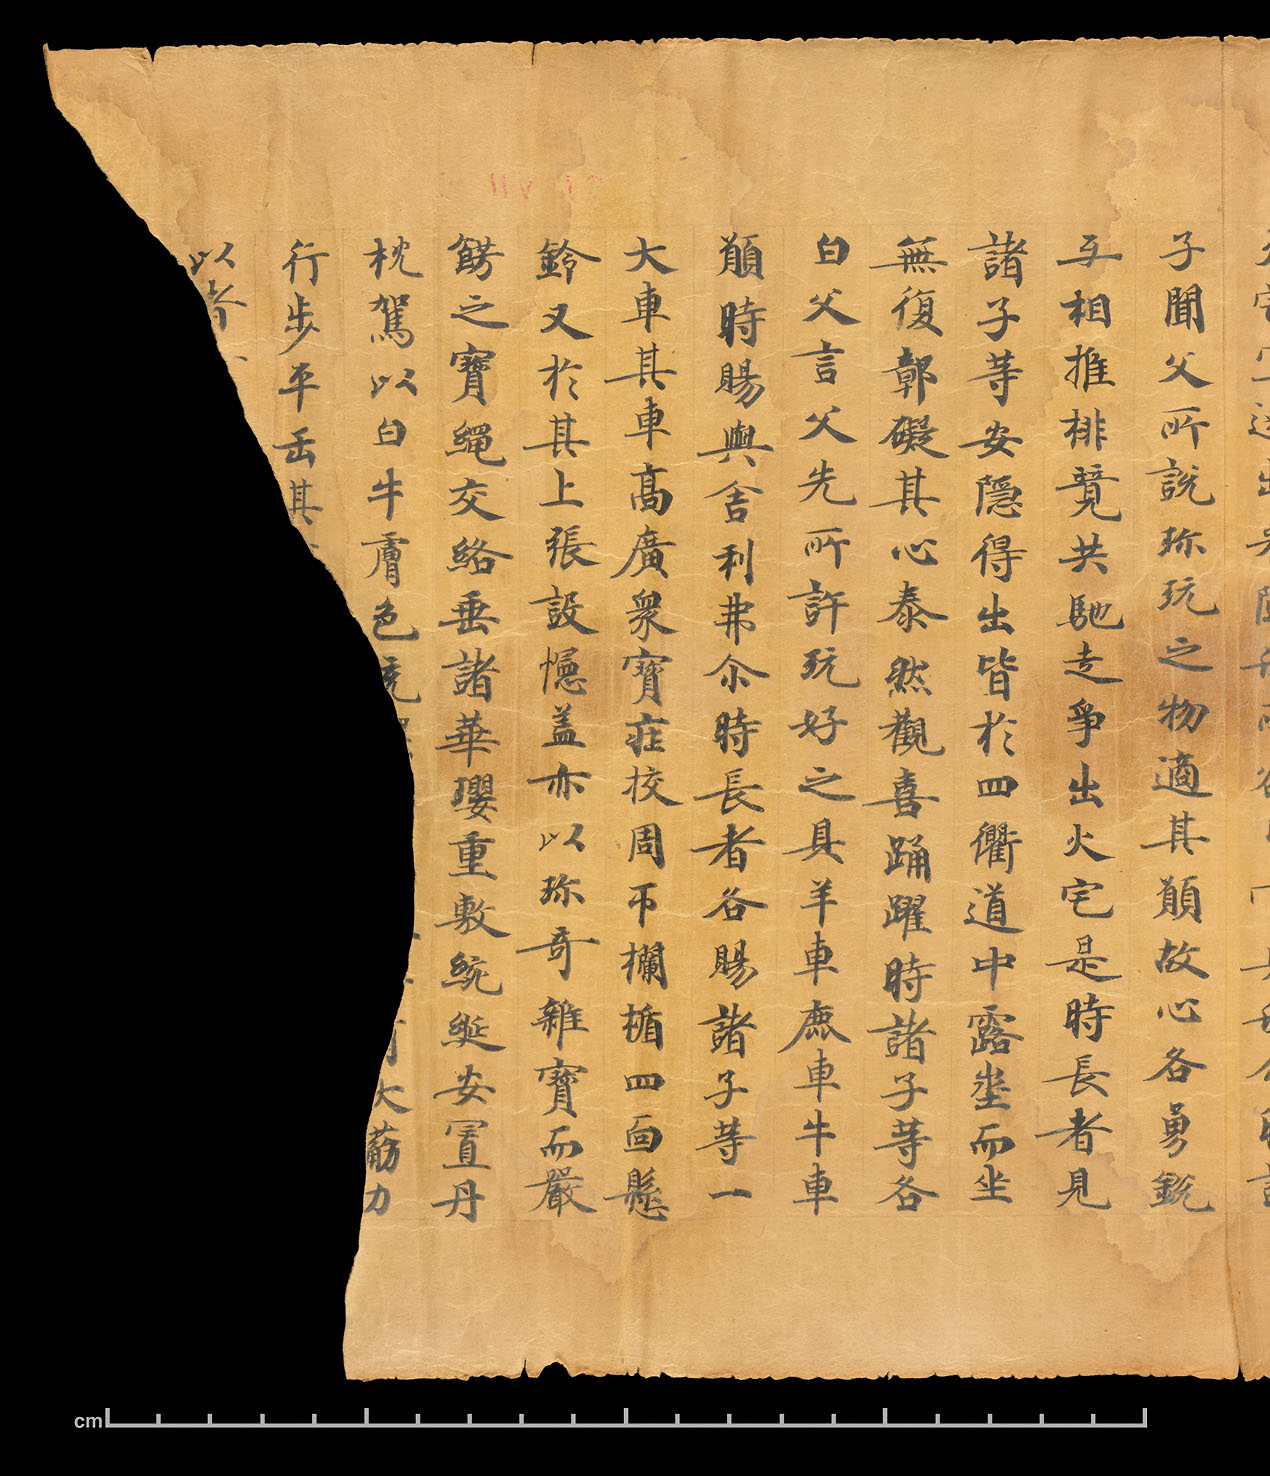 子聞父所說珎玩之物適其願故心各勇銳
互相推排競共馳走爭出火宅是時長者見
諸子等安隱得出皆於四衢道中露埊而坐
無復鄣礙其心泰然觀喜踊躍時諸子等各
白父言父先所許玩好之具羊車鹿車牛車
願時賜與舍利弗尒時長者各賜諸子等一
大車其車高廣衆寶莊校周帀欄楯四面懸
鈴又於其上張設幰盖亦以珎奇雜寶而嚴
餝之寶繩交絡垂諸華瓔重敷綩綖安置丹
枕駕以白牛膚色充大荕力
行步平𠙺其
以者